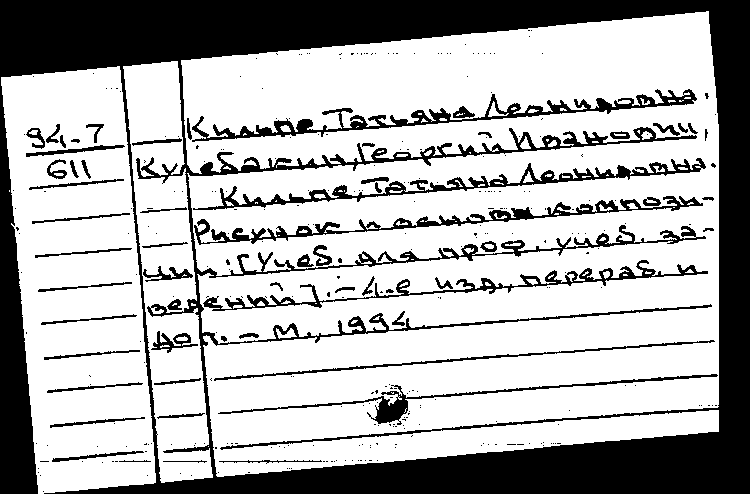 Кильпе, Татьяна Леонидовна.
94-7
611
Кулебакин, Георгий Иванович,
Кильпе, Татьяна Леонидовна.
Рисунок и основы компози-
ции: [Учеб. для проф. учеб. за-
ведений]. - 4-е изд., перераб. и
доп. - М., 1994